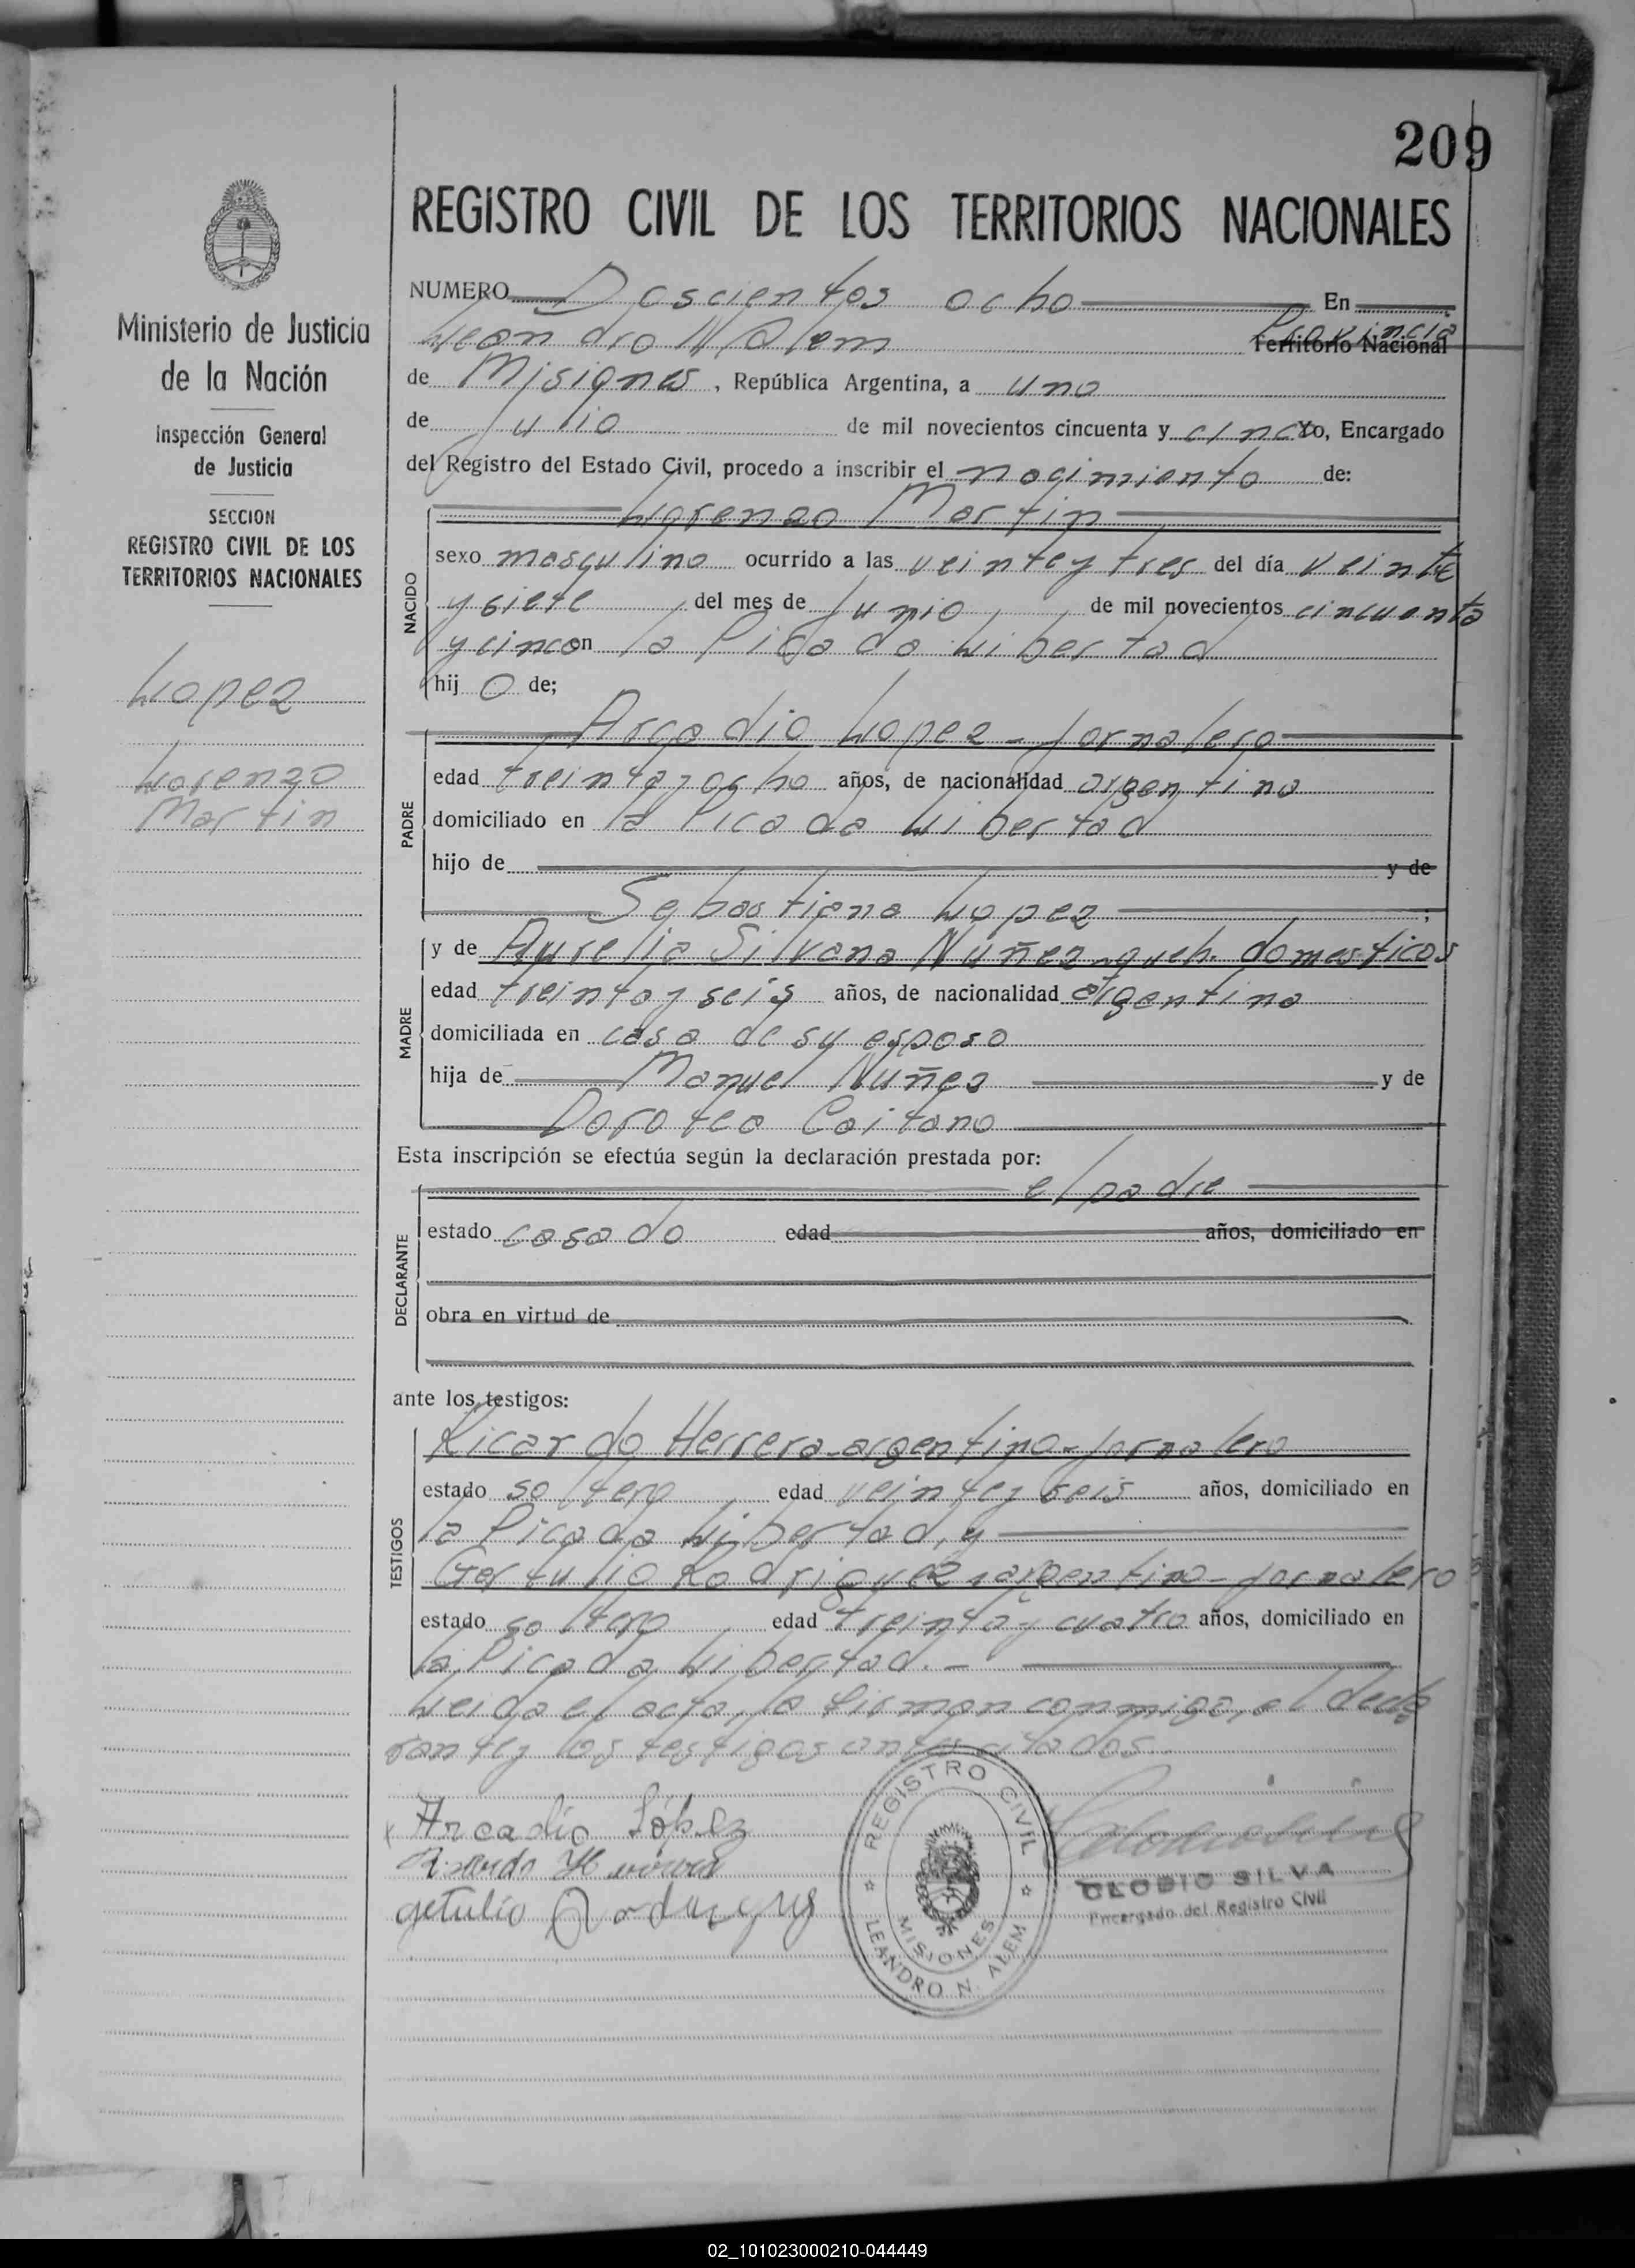 209
REGISTRO CIVIL DE LOS TERRITORIOS NACIONALES
Ministerio de Justicia
de la Nación
Inspección General
de Justicia
SECCION
REGISTRO CIVIL DE LOS
TERRITORIOS NACIONALES
Lopez
Lorenzo
Martin
NUMERO Doscientos ocho En
Leandro N Alem Provincia Territorio Nacional
de Misiones, República Argentina, a uno
de Julio de mil novecientos cincuenta y cinco Yo, Encargado
del Registro del Estado Civil, procedo a inscribir el nacimiento de:
NACIDO
Lorenzo Martin
sexo masculino ocurrido a las veinte y tres del día veinte
y siete, del mes de Junio, de mil novecientos cincuenta
y cinco en la Picada Libertad
hij o de;
PADRE
Arcadio Lopez - Jornalero
edad treinta y ocho años, de nacionalidad argentina
domiciliado en la Picada Libertad
hijo de y de
Sebastiana Lopez ;
MADRE
y de Aurelia Silvana Nuñez - queh. domesticos
edad treinta y seis años, de nacionalidad argentina
domiciliada en casa de su esposo
hija de Manuel Nuñez y de
Dorotea Caitano
Esta inscripción se efectúa según la declaración prestada por:
DECLARANTE
el padre
estado casado edad años, domiciliado en
obra en virtud de
ante los testigos:
TESTIGOS
Ricardo Herrera - argentino - jornalero
estado soltero edad veinte y seis años, domiciliado en
la Picada Libertad, y
Getulio Rodriguez - argentino - jornalero
estado soltero edad treinta y cuatro años, domiciliado en
la Picada Libertad. -
Leida el acta, la firman conmigo, el decla
rante y los testigos antes citados.
Arcadio López
Ricardo Herrera
getulio Rodrigues
REGISTRO CIVIL
LEANDRO N. ALEM
MISIONES
CLODIO SILVA
Encargado del Registro Civil
02_101023000210-044449